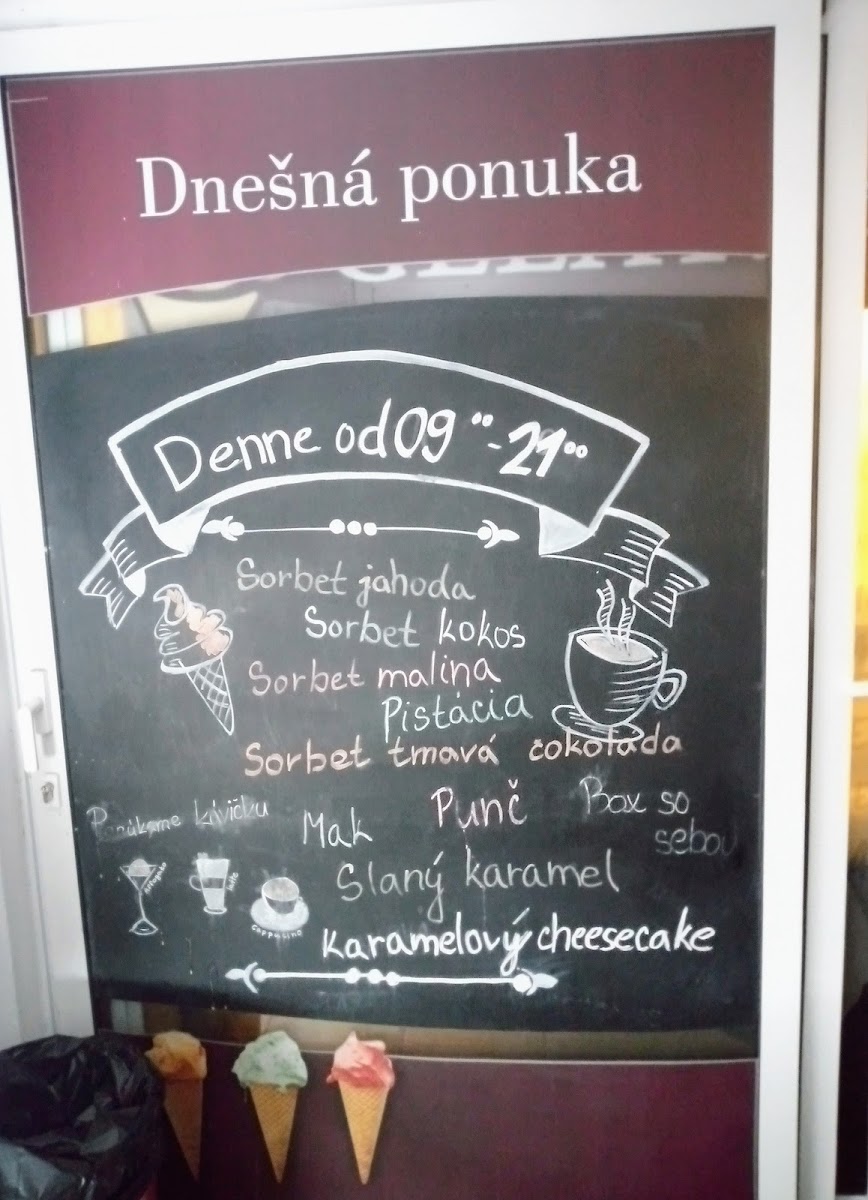 Dnešná ponuka
Denne od 09⁰⁰-21⁰⁰
Sorbet jahoda
Sorbet kokos
Sorbet malina
Pistácia
Sorbet tmavá čokoláda
Ponúkame kávičku
Mak
Punč
Box so
sebou
Slaný karamel
Affogato
latte
cappucino
Karamelový cheesecake